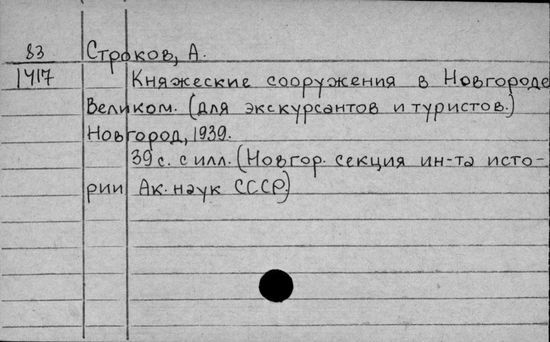 83 Строков, А.
1417 Княжеские сооружения в Новгороде
Великом. (для экскурсантов и туристов.)
Новгород, 1939.
39 с. с илл. (Новгор. секция ин-та исто-
рии Ак. наук СССР.)